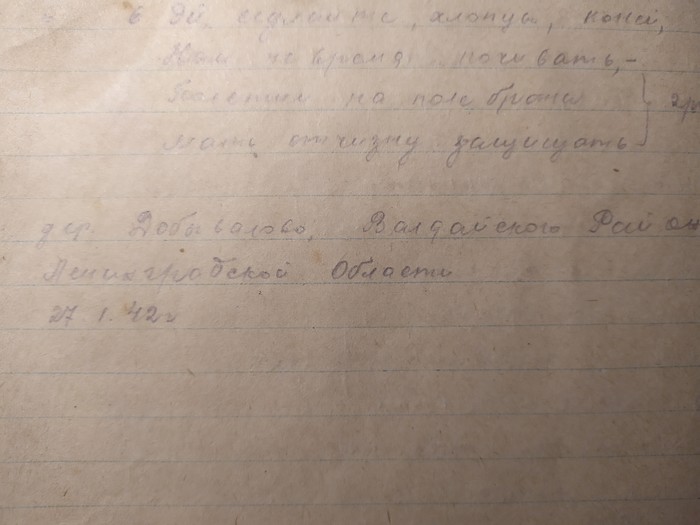 6 Эй, седлайте, хлопцы, коней,
Нам не время почивать, –
Полетим на поле брани
Мать отчизну защищать
дер. Добывалово, Валдайского Район
Ленинградской Области
27.1.42 г